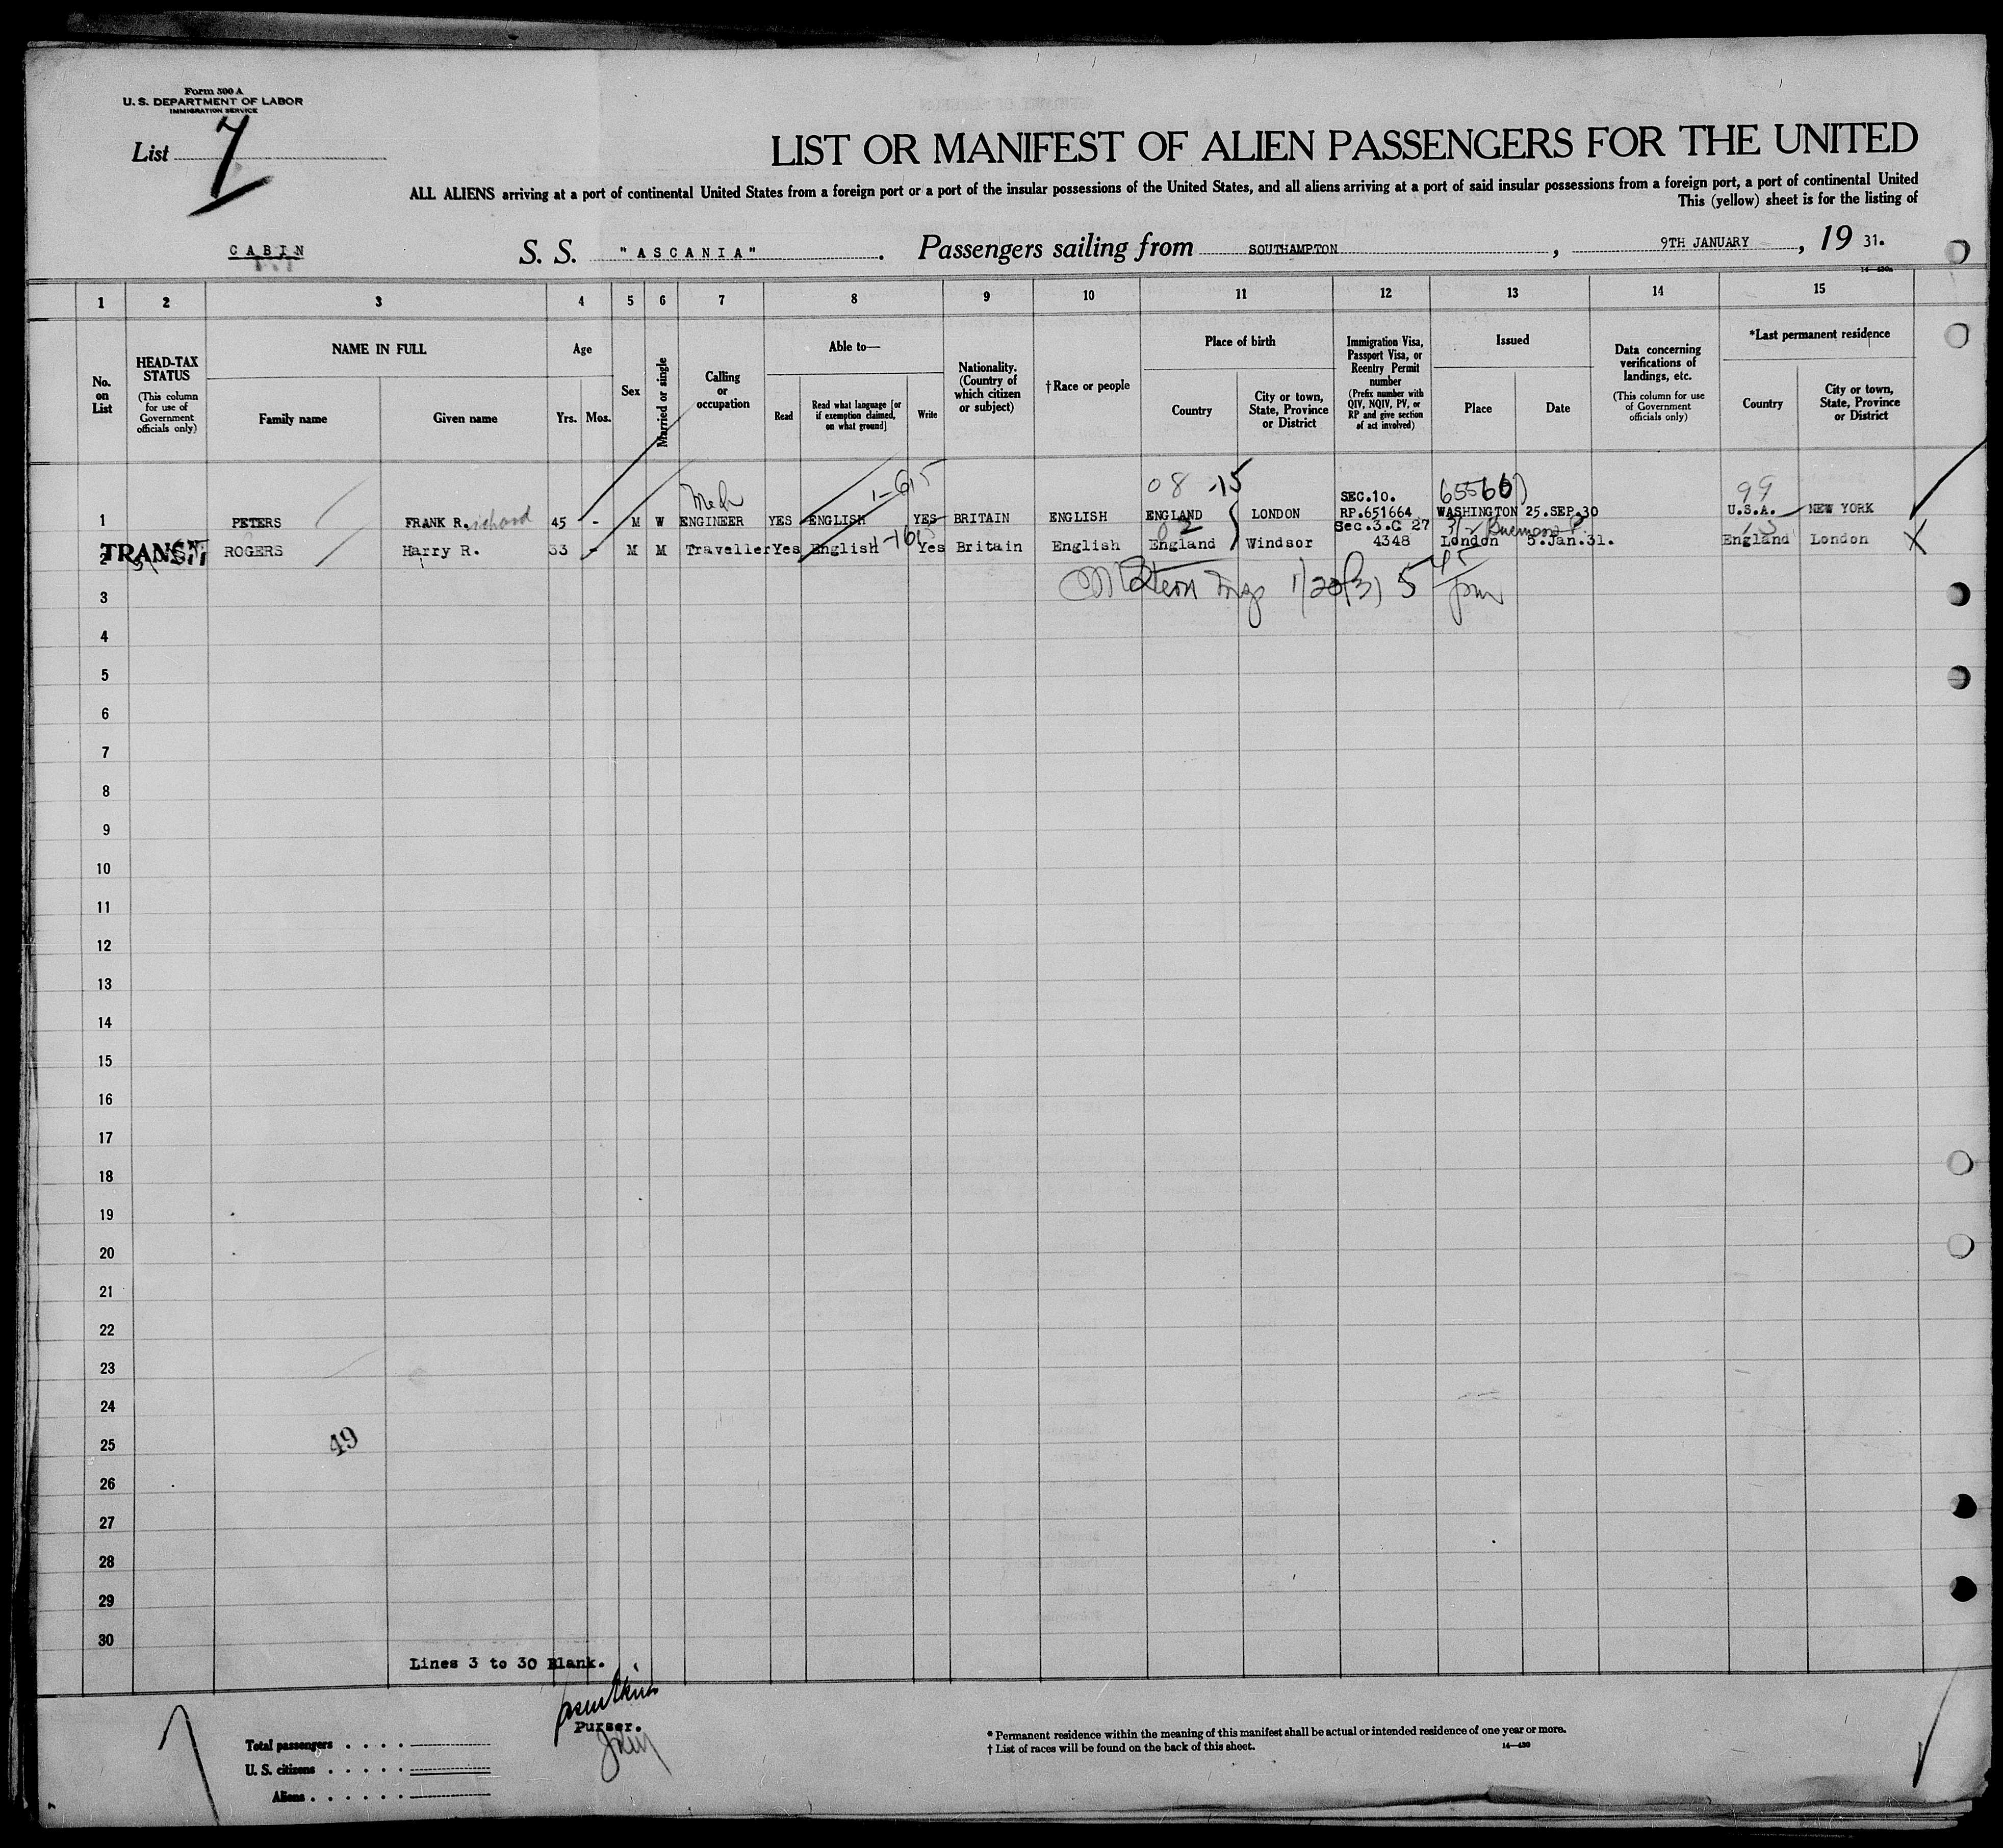 Form 500 A
U. S. DEPARTMENT OF LABOR
IMMIGRATION SERVICE
List 7
LIST OR MANIFEST OF ALIEN PASSENGERS FOR THE UNITED
ALL ALIENS arriving at a port of continental United States from a foreign port or a port of the insular possessions of the United States, and all aliens arriving at a port of said insular possessions from a foreign port, a port of continental United
This (yellow) sheet is for the listing of
CABIN S. S. "ASCANIA". Passengers sailing from SOUTHAMPTON, 9TH JANUARY, 19 31.
1 2 3 4 5 6 7 8 9 10 11 12 13 14 15
No. on List
HEAD-TAX STATUS
(This column for use of Government officials only)
NAME IN FULL
Family name
Given name
Age
Yrs. Mos.
Sex
Married or single
Calling or occupation
Able to—
Read
Read what language [or if exemption claimed, on what ground]
Write
Nationality. (Country of which citizen or subject)
† Race or people
Place of birth
Country
City or town, State, Province or District
Immigration Visa, Passport Visa, or Reentry Permit number
(Prefix number with QIV, NQIV, PV, or RP and give section of act involved)
Issued
Place
Date
Data concerning verifications of landings, etc.
(This column for use of Government officials only)
*Last permanent residence
Country
City or town, State, Province or District
08 -15
99
SEC.10.
1 PETERS FRANK R. ichard 45 - M W ENGINEER YES ENGLISH 1-615 YES BRITAIN ENGLISH ENGLAND LONDON RP.651664 WASHINGTON 25.SEP.30 U.S.A. NEW YORK
Sec.3.C 27
2 TRANSIT ROGERS Harry R. 33 - M M Traveller Yes English Yes Britain English England Windsor 4348 London 5.Jan.31. England London X
1/20/31 5 45 pm
3
4
5
6
7
8
9
10
11
12
13
14
15
16
17
18
19
20
21
22
23
24
25
49
26
27
28
29
30
Lines 3 to 30 Blank.
Purser.
Total passengers . . . .
U. S. citizens . . . . .
Aliens . . . . . .
* Permanent residence within the meaning of this manifest shall be actual or intended residence of one year or more.
† List of races will be found on the back of this sheet.
14—430